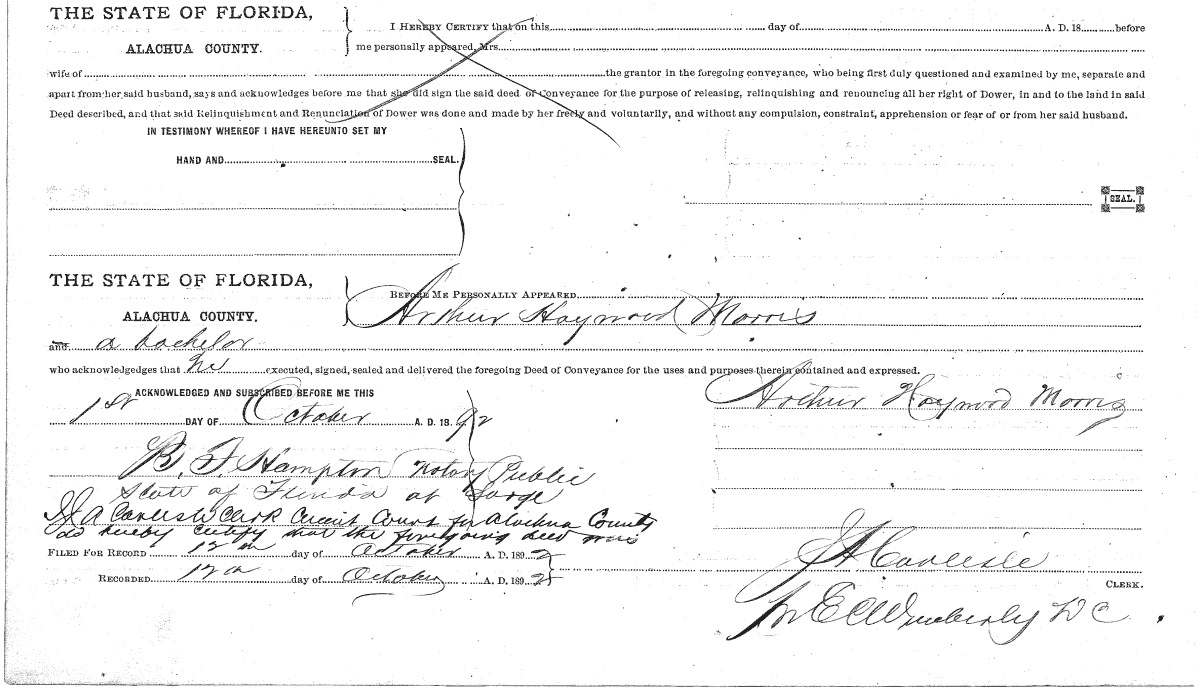 THE STATE OF FLORIDA,
ALACHUA COUNTY.
I HEREBY CERTIFY that on this day of A. D. 18 before
me personally appeared, Mrs.
wife of the grantor in the foregoing conveyance, who being first duly questioned and examined by me, separate and
apart from her said husband, says and acknowledges before me that she did sign the said deed of Conveyance for the purpose of releasing, relinquishing and renouncing all her right of Dower, in and to the land in said
Deed described, and that said Relinquishment and Renunciation of Dower was done and made by her freely and voluntarily, and without any compulsion, constraint, apprehension or fear of or from her said husband.
IN TESTIMONY WHEREOF I HAVE HEREUNTO SET MY
HAND AND SEAL.
SEAL.
THE STATE OF FLORIDA,
ALACHUA COUNTY.
BEFORE ME PERSONALLY APPEARED
Arthur Haywood Morris
and a bachelor
who acknowledgedges that he executed, signed, sealed and delivered the foregoing Deed of Conveyance for the uses and purposes therein contained and expressed.
ACKNOWLEDGED AND SUBSCRIBED BEFORE ME THIS
1st DAY OF October A. D. 18 92
Arthur Haywood Morris
B. F. Hampton Notary Public
State of Florida at Large
I J A Carlisle Clerk Circuit Court for Alachua County
do hereby certify that the foregoing deed was
FILED FOR RECORD 12 day of October A. D. 189 2
RECORDED 12 day of October A. D. 189 2
J A Carlisle
CLERK.
Per E C Wimberly D C